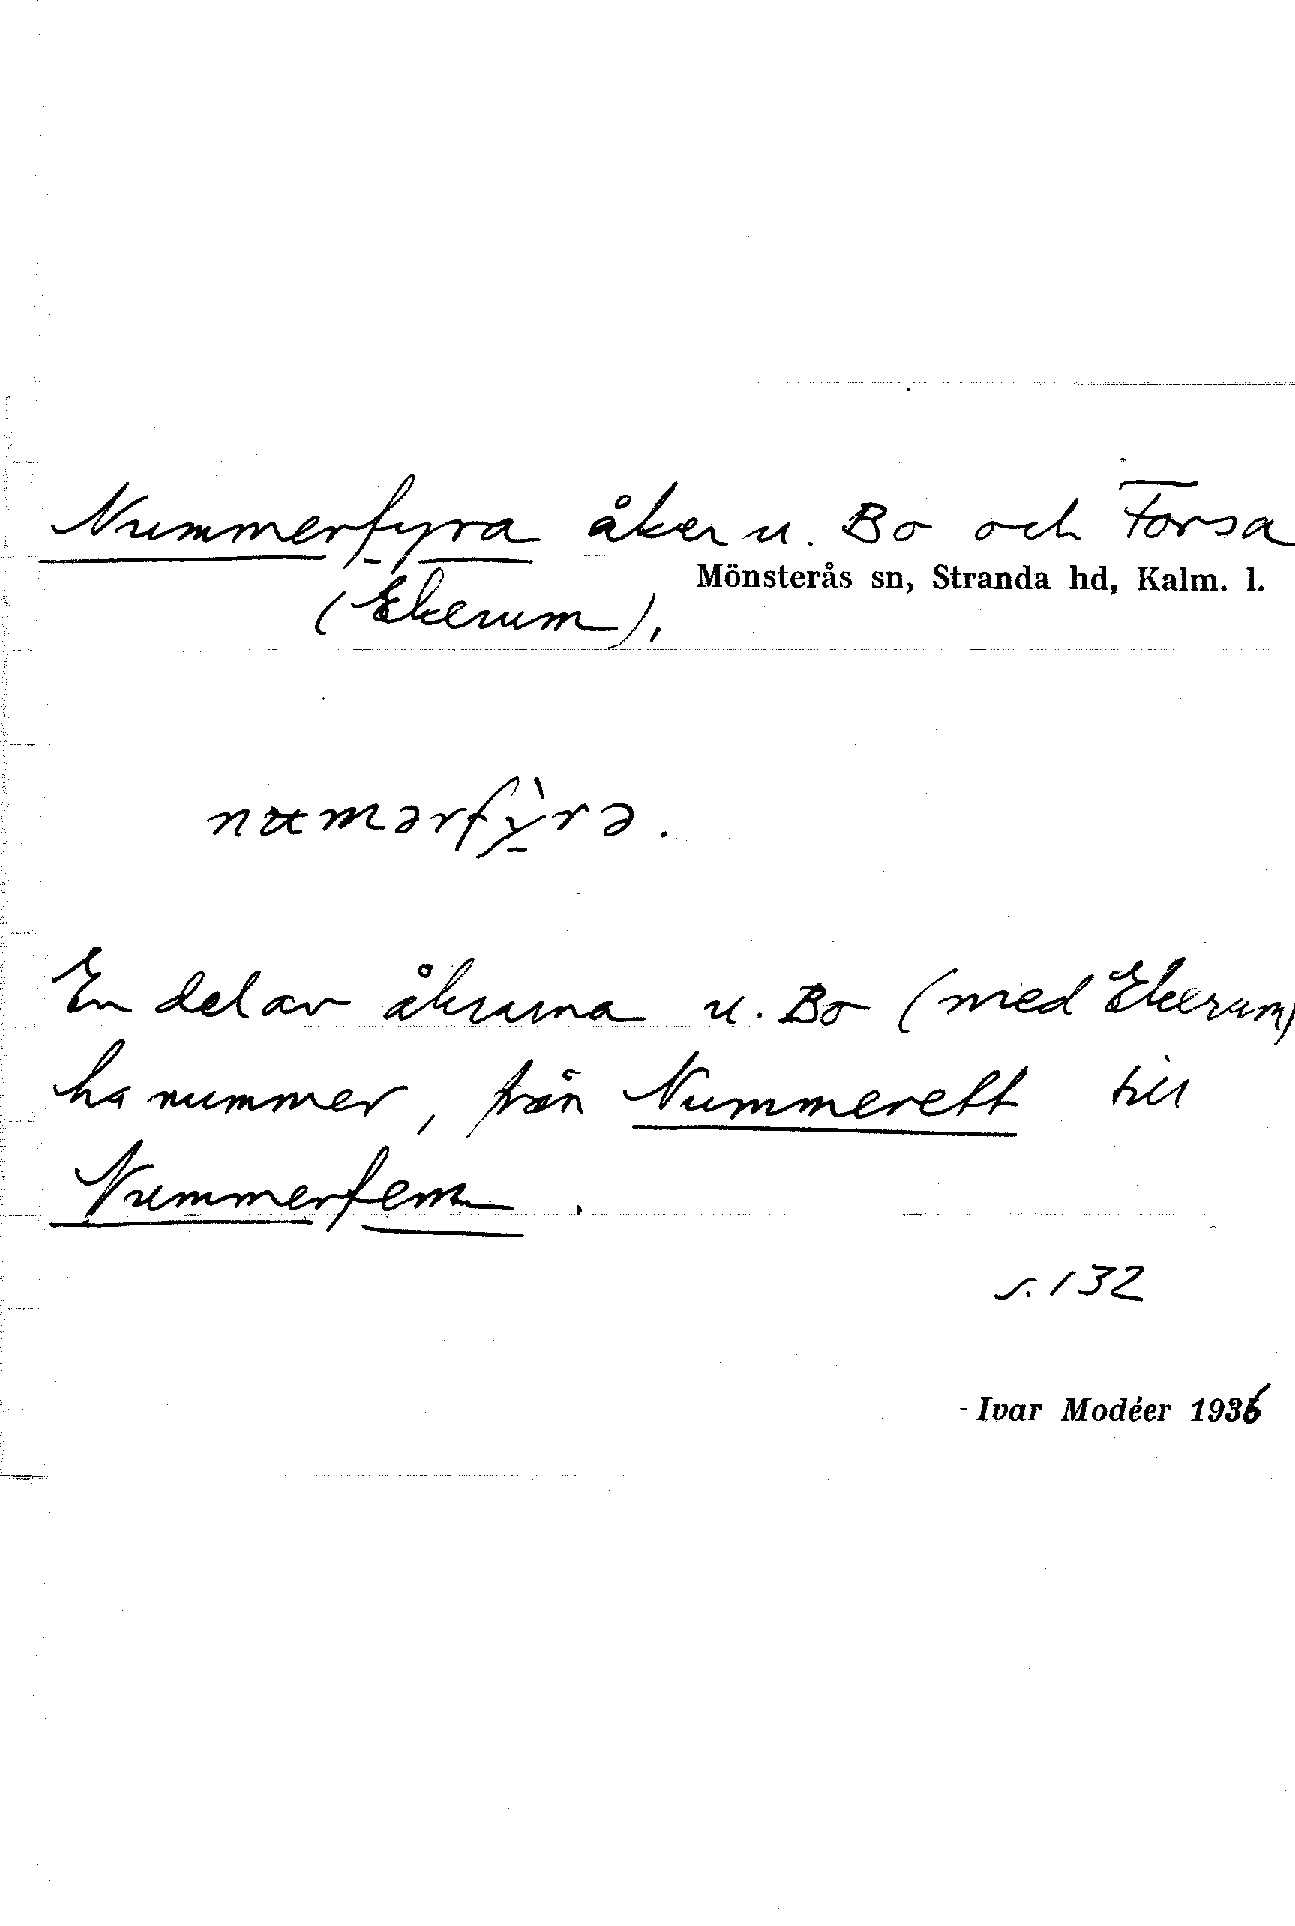 Nummerfyra åker u. Bo och Forsa
Mönsterås sn, Stranda hd, Kalm. l.
(Ekerum),
numərfỳrə.
En del av åkrarna u. Bo (med Ekerum)
ha nummer, från Nummerett till
Nummerfem.
s. 132
- Ivar Modéer 1936